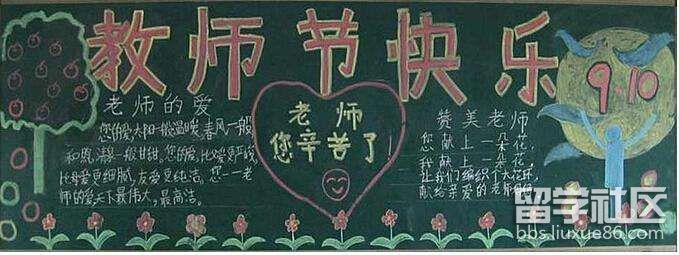 教师节快乐
9.10
老师的爱
您的爱,太阳一般温暖,春风一般
和煦,清泉一般甘甜。您的爱,比父爱更严峻,
比母爱更细腻,友爱更纯洁。您—老
师的爱,天下最伟大,最高洁。
老师
您辛苦了!
赞美老师
您献上一朵花,
我献上一朵花,
让我们编织个大花环,
献给亲爱的老师
留学社区
bbs.liuxue86.com